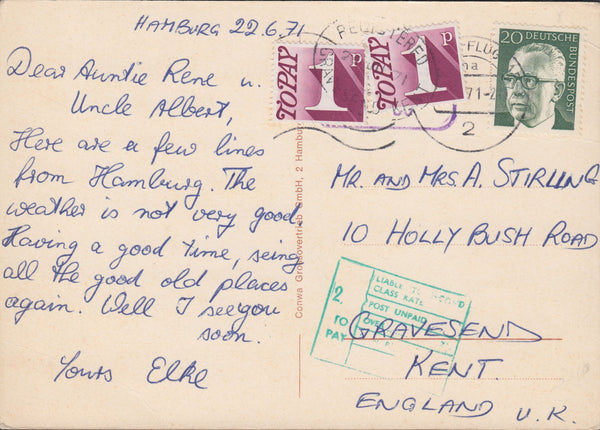 HAMBURG 22.6.71
Dear Auntie Rene u.
Uncle Albert,
Here are a few lines
from Hamburg. The
weather is not very good.
Having a good time, seing
all the good old places
again. Well I see you
soon.
Yours Elke
Conwa Großovertrieb GmbH, 2 Hambur
TO PAY 1P
TO PAY 1P
REGISTERED
GRAV
71
FLUG
71-
2
20 DEUTSCHE
BUNDESPOST
MR. AND MRS. A. STIRLING
10 HOLLY BUSH ROAD
GRAVESEND
KENT.
ENGLAND U.K.
2
TO
PAY
LIABLE
CLASS RATE
POST UNPAID